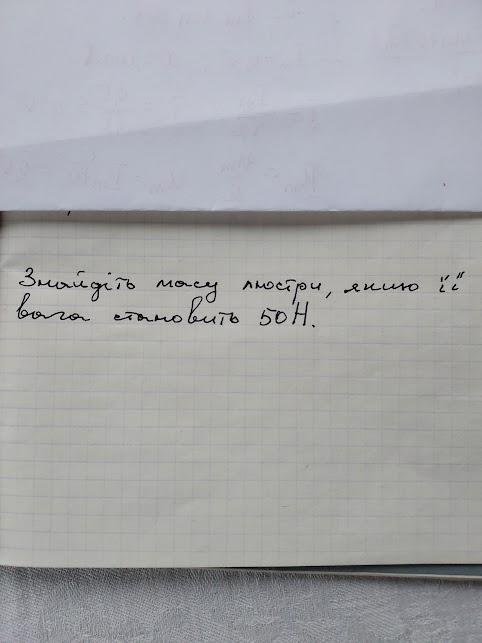 Знайдіть масу люстри, якщо її
вага становить 50Н.